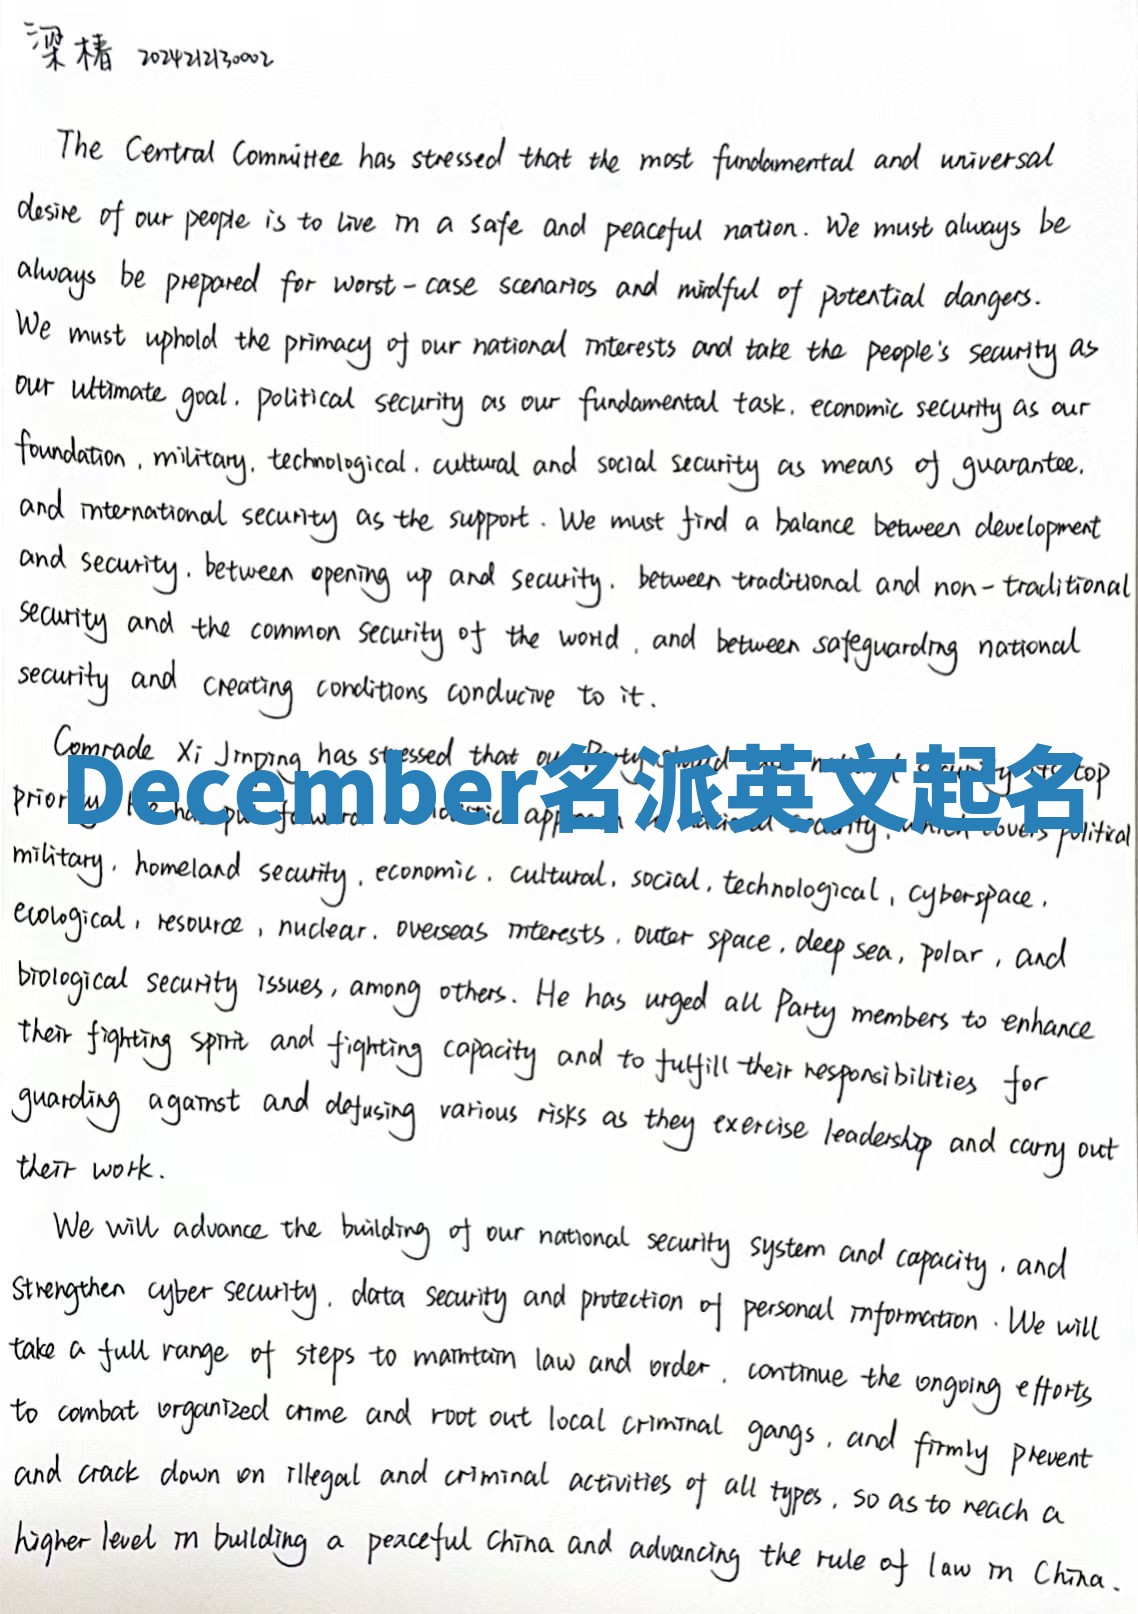 梁椿 2024212130002
The Central Committee has stressed that the most fundamental and universal
desire of our people is to live in a safe and peaceful nation. We must always be
always be prepared for worst-case scenarios and mindful of potential dangers.
We must uphold the primacy of our national interests and take the people's security as
our ultimate goal, political security as our fundamental task, economic security as our
foundation, military, technological, cultural and social security as means of guarantee,
and international security as the support. We must find a balance between development
and security, between opening up and security, between traditional and non-traditional
security and the common security of the world, and between safeguarding national
security and creating conditions conducive to it.
Comrade Xi Jinping has stressed that our Party should security top
December名派英文起名
priority. He has put forward a holistic approach national security, which covers political
military, homeland security, economic, cultural, social, technological, cyberspace,
ecological, resource, nuclear, overseas interests, outer space, deep sea, polar, and
biological security issues, among others. He has urged all Party members to enhance
their fighting spirit and fighting capacity and to fulfill their responsibilities for
guarding against and defusing various risks as they exercise leadership and carry out
their work.
We will advance the building of our national security system and capacity, and
strengthen cyber security, data security and protection of personal information. We will
take a full range of steps to maintain law and order, continue the ongoing efforts
to combat organized crime and root out local criminal gangs, and firmly prevent
and crack down on illegal and criminal activities of all types, so as to reach a
higher level in building a peaceful China and advancing the rule of law in China.